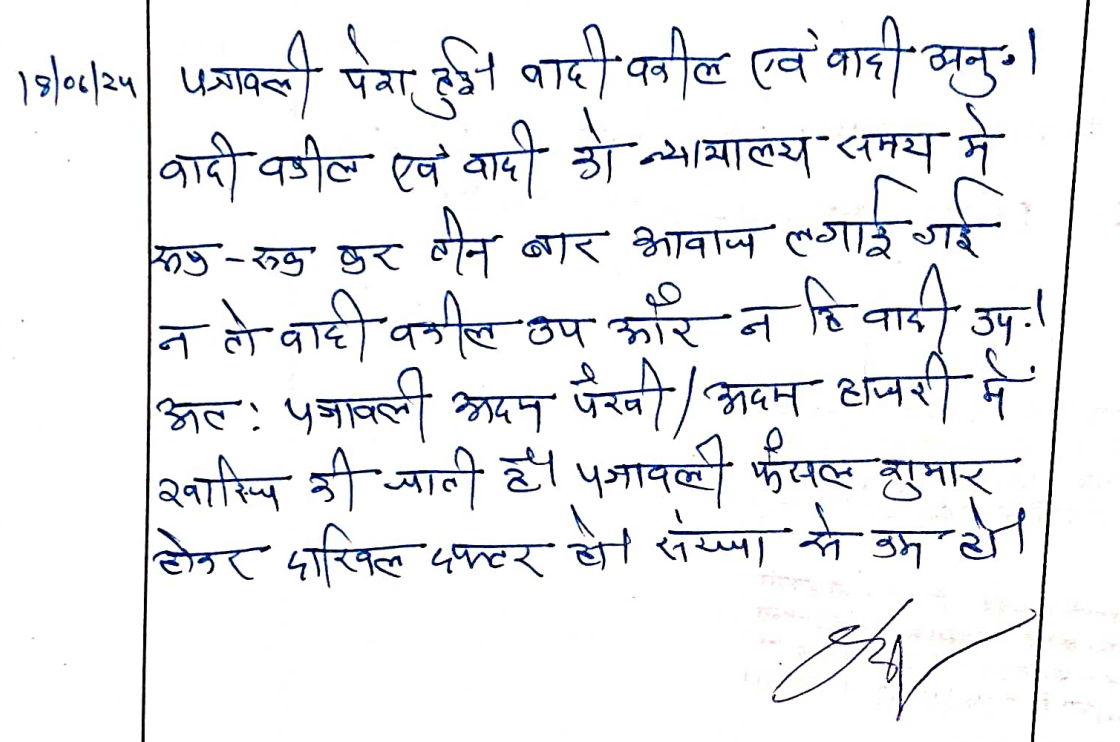 18/06/24 पत्रावली पेश हुई। वादी वकील एवं वादी अनु०।
वादी वकील एवं वादी को न्यायालय समय मे
रुक-रुक कर तीन बार आवाज लगाई गई
न तो वादी वकील उप और न हि वादी उप.।
अत: पत्रावली अदम पैरवी/अदम हाजरी में
खारिज की जाती है। पत्रावली फैसल शुमार
होकर दाखिल दफ्तर हो। संख्या से कम हो।